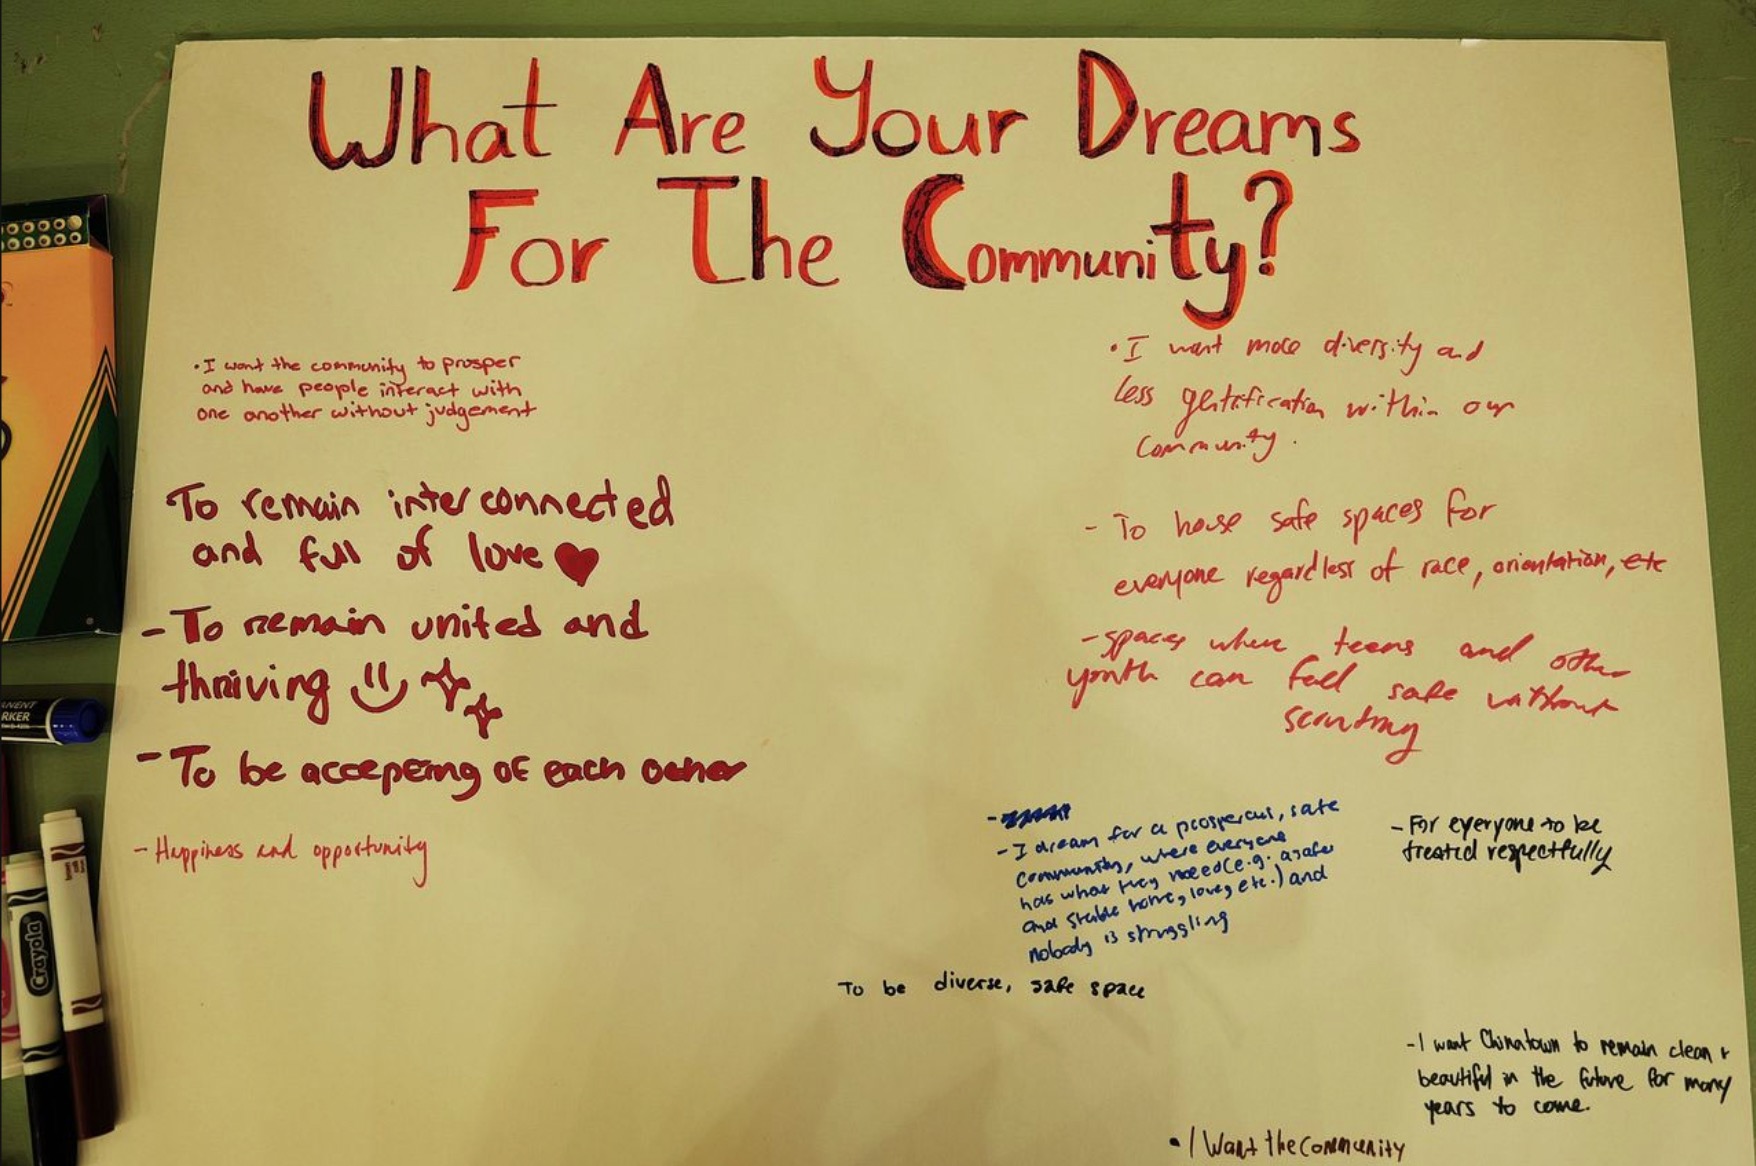 What Are Your Dreams
For The Community?
• I want the community to prosper
and have people interact with
one another without judgement
To remain interconnected
and full of love
- To remain united and
thriving
- To be accepering of each other
- Happiness and opportunity
• I want more diversity and
less gentrification within our
community.
- To house safe spaces for
everyone regardless of race, orientation, etc
- spaces where teens and other
youth can feel safe without
scrutiny
- I dream for a prosperous, safe
community, where everyone
has what they need (e.g. a safe
and stable home, love, etc.) and
nobody is struggling
- For everyone to be
treated respectfully
To be diverse, safe space
- I want Chinatown to remain clean +
beautiful in the future for many
years to come.
• I Want the community
Crayola
ANENT
RKER